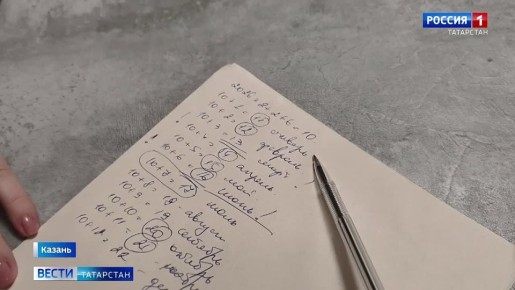 РОССИЯ 1
ТАТАРСТАН
2026 = 2+2+6 = 10
10+1 = 11 январь
10+2 = 12 февраль
10+3 = 13 март
10+4 = 14 апрель
10+5 = 15 май
10+6 = 16 июнь!
10+7 = 17 июль
10+8 = 18 август
10+9 = 19 сентябрь
10+10 = 20 октябрь
10+11 = 21 ноябрь
10+12 = 22 -
Казань
ВЕСТИ ТАТАРСТАН